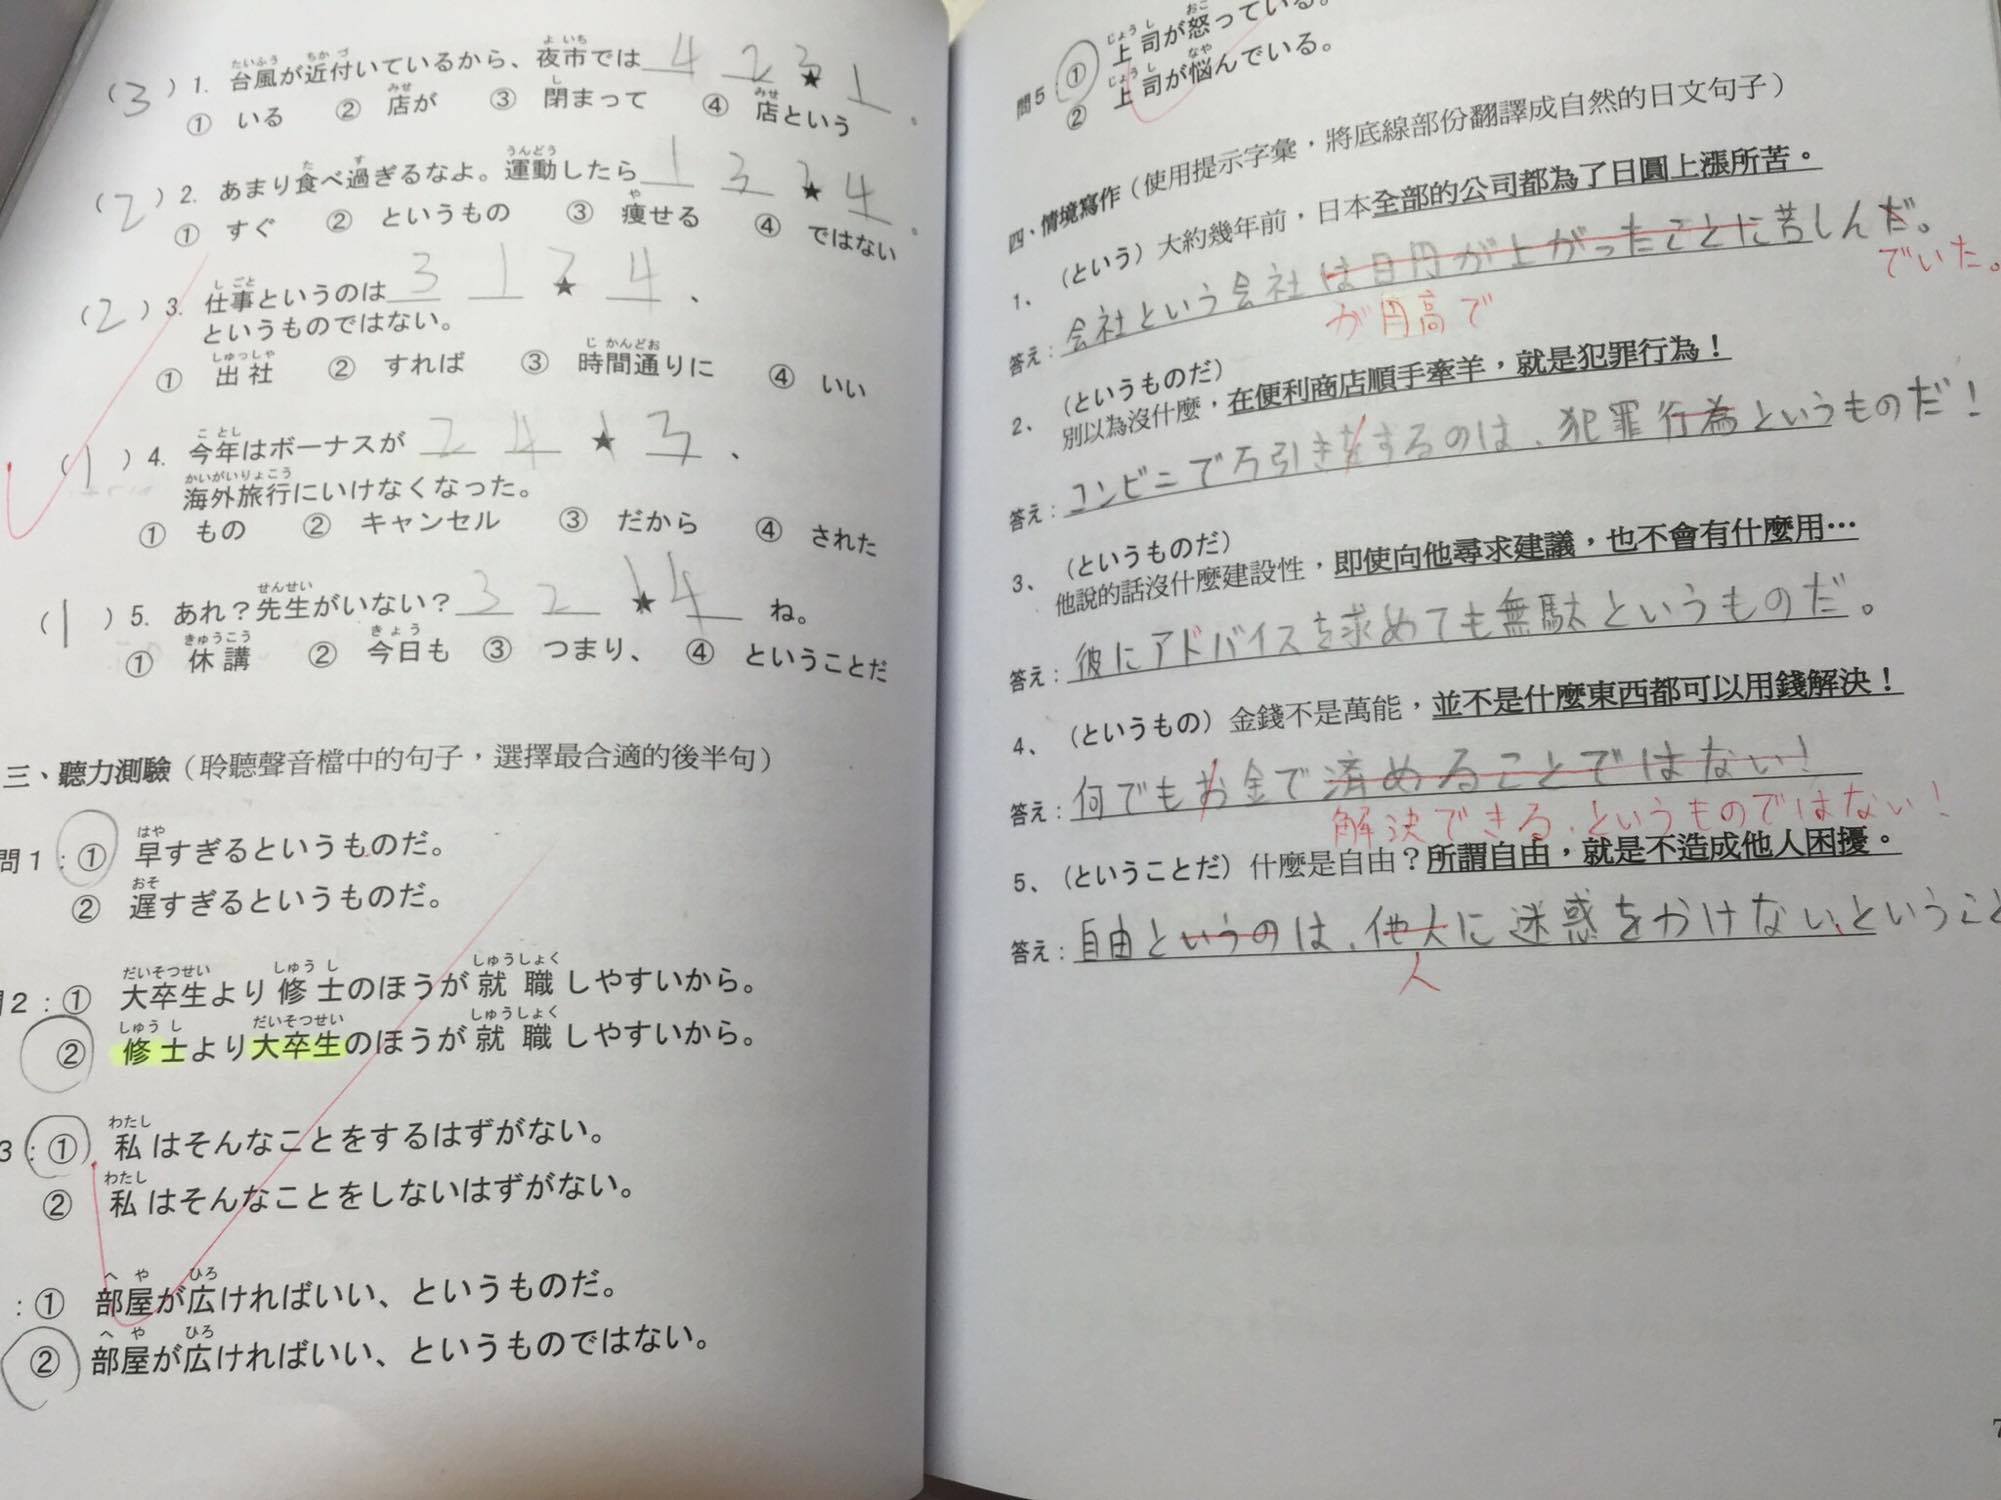 (3) 1. 台風が近付いているから、夜市では 4 2 3★ 1 。
たいふう ちかづ よいち
① いる ② 店が ③ 閉まって ④ 店という
みせ し みせ
(2) 2. あまり食べ過ぎるなよ。運動したら 1 3 2★ 4 。
た す うんどう
① すぐ ② というもの ③ 痩せる ④ ではない
や
(2) 3. 仕事というのは 3 1 2★ 4 、
しごと
というものではない。
① 出社 ② すれば ③ 時間通りに ④ いい
しゅっしゃ じかんどお
(1) 4. 今年はボーナスが 2 4 1★ 3 、
ことし
海外旅行にいけなくなった。
かいがいりょこう
① もの ② キャンセル ③ だから ④ された
(1) 5. あれ？先生がいない？ 3 2 1★ 4 ね。
せんせい
① 休講 ② 今日も ③ つまり、 ④ ということだ
きゅうこう きょう
三、聽力測驗（聆聽聲音檔中的句子，選擇最合適的後半句）
問1：① 早すぎるというものだ。
はや
② 遅すぎるというものだ。
おそ
2：① 大卒生より修士のほうが就職しやすいから。
だいそつせい しゅうし しゅうしょく
② 修士より大卒生のほうが就職しやすいから。
しゅうし だいそつせい しゅうしょく
3：① 私はそんなことをするはずがない。
わたし
② 私はそんなことをしないはずがない。
わたし
：① 部屋が広ければいい、というものだ。
へや ひろ
② 部屋が広ければいい、というものではない。
へや ひろ
問5：① 上司が怒っている。
じょうし おこ
② 上司が悩んでいる。
じょうし なや
四、情境寫作（使用提示字彙，將底線部份翻譯成自然的日文句子）
1、（という）大約幾年前，日本全部的公司都為了日圓上漲所苦。
答え：会社という会社は日円が上がったことに苦しんだ。
が円高で
でいた。
2、（というものだ）
別以為沒什麼，在便利商店順手牽羊，就是犯罪行為！
答え：コンビニで万引きをするのは、犯罪行為というものだ！
3、（というものだ）
他說的話沒什麼建設性，即使向他尋求建議，也不會有什麼用…
答え：彼にアドバイスを求めても無駄というものだ。
4、（というもの）金錢不是萬能，並不是什麼東西都可以用錢解決！
答え：何でもお金で済めることではない！
解決できる、というものではない！
5、（ということだ）什麼是自由？所謂自由，就是不造成他人困擾。
答え：自由というのは、他人に迷惑をかけない、ということ
人
7